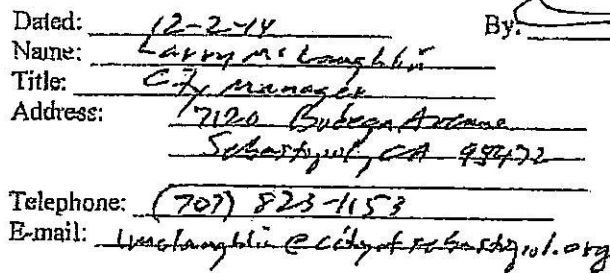 Dated: 12-2-14 By:
Name: Larry McLaughlin
Title: City Manager
Address: 7120 Bodega Avenue
Sebastopol, CA 95472
Telephone: (707) 823-1153
E-mail: lmclaughlin@cityofsebastopol.org